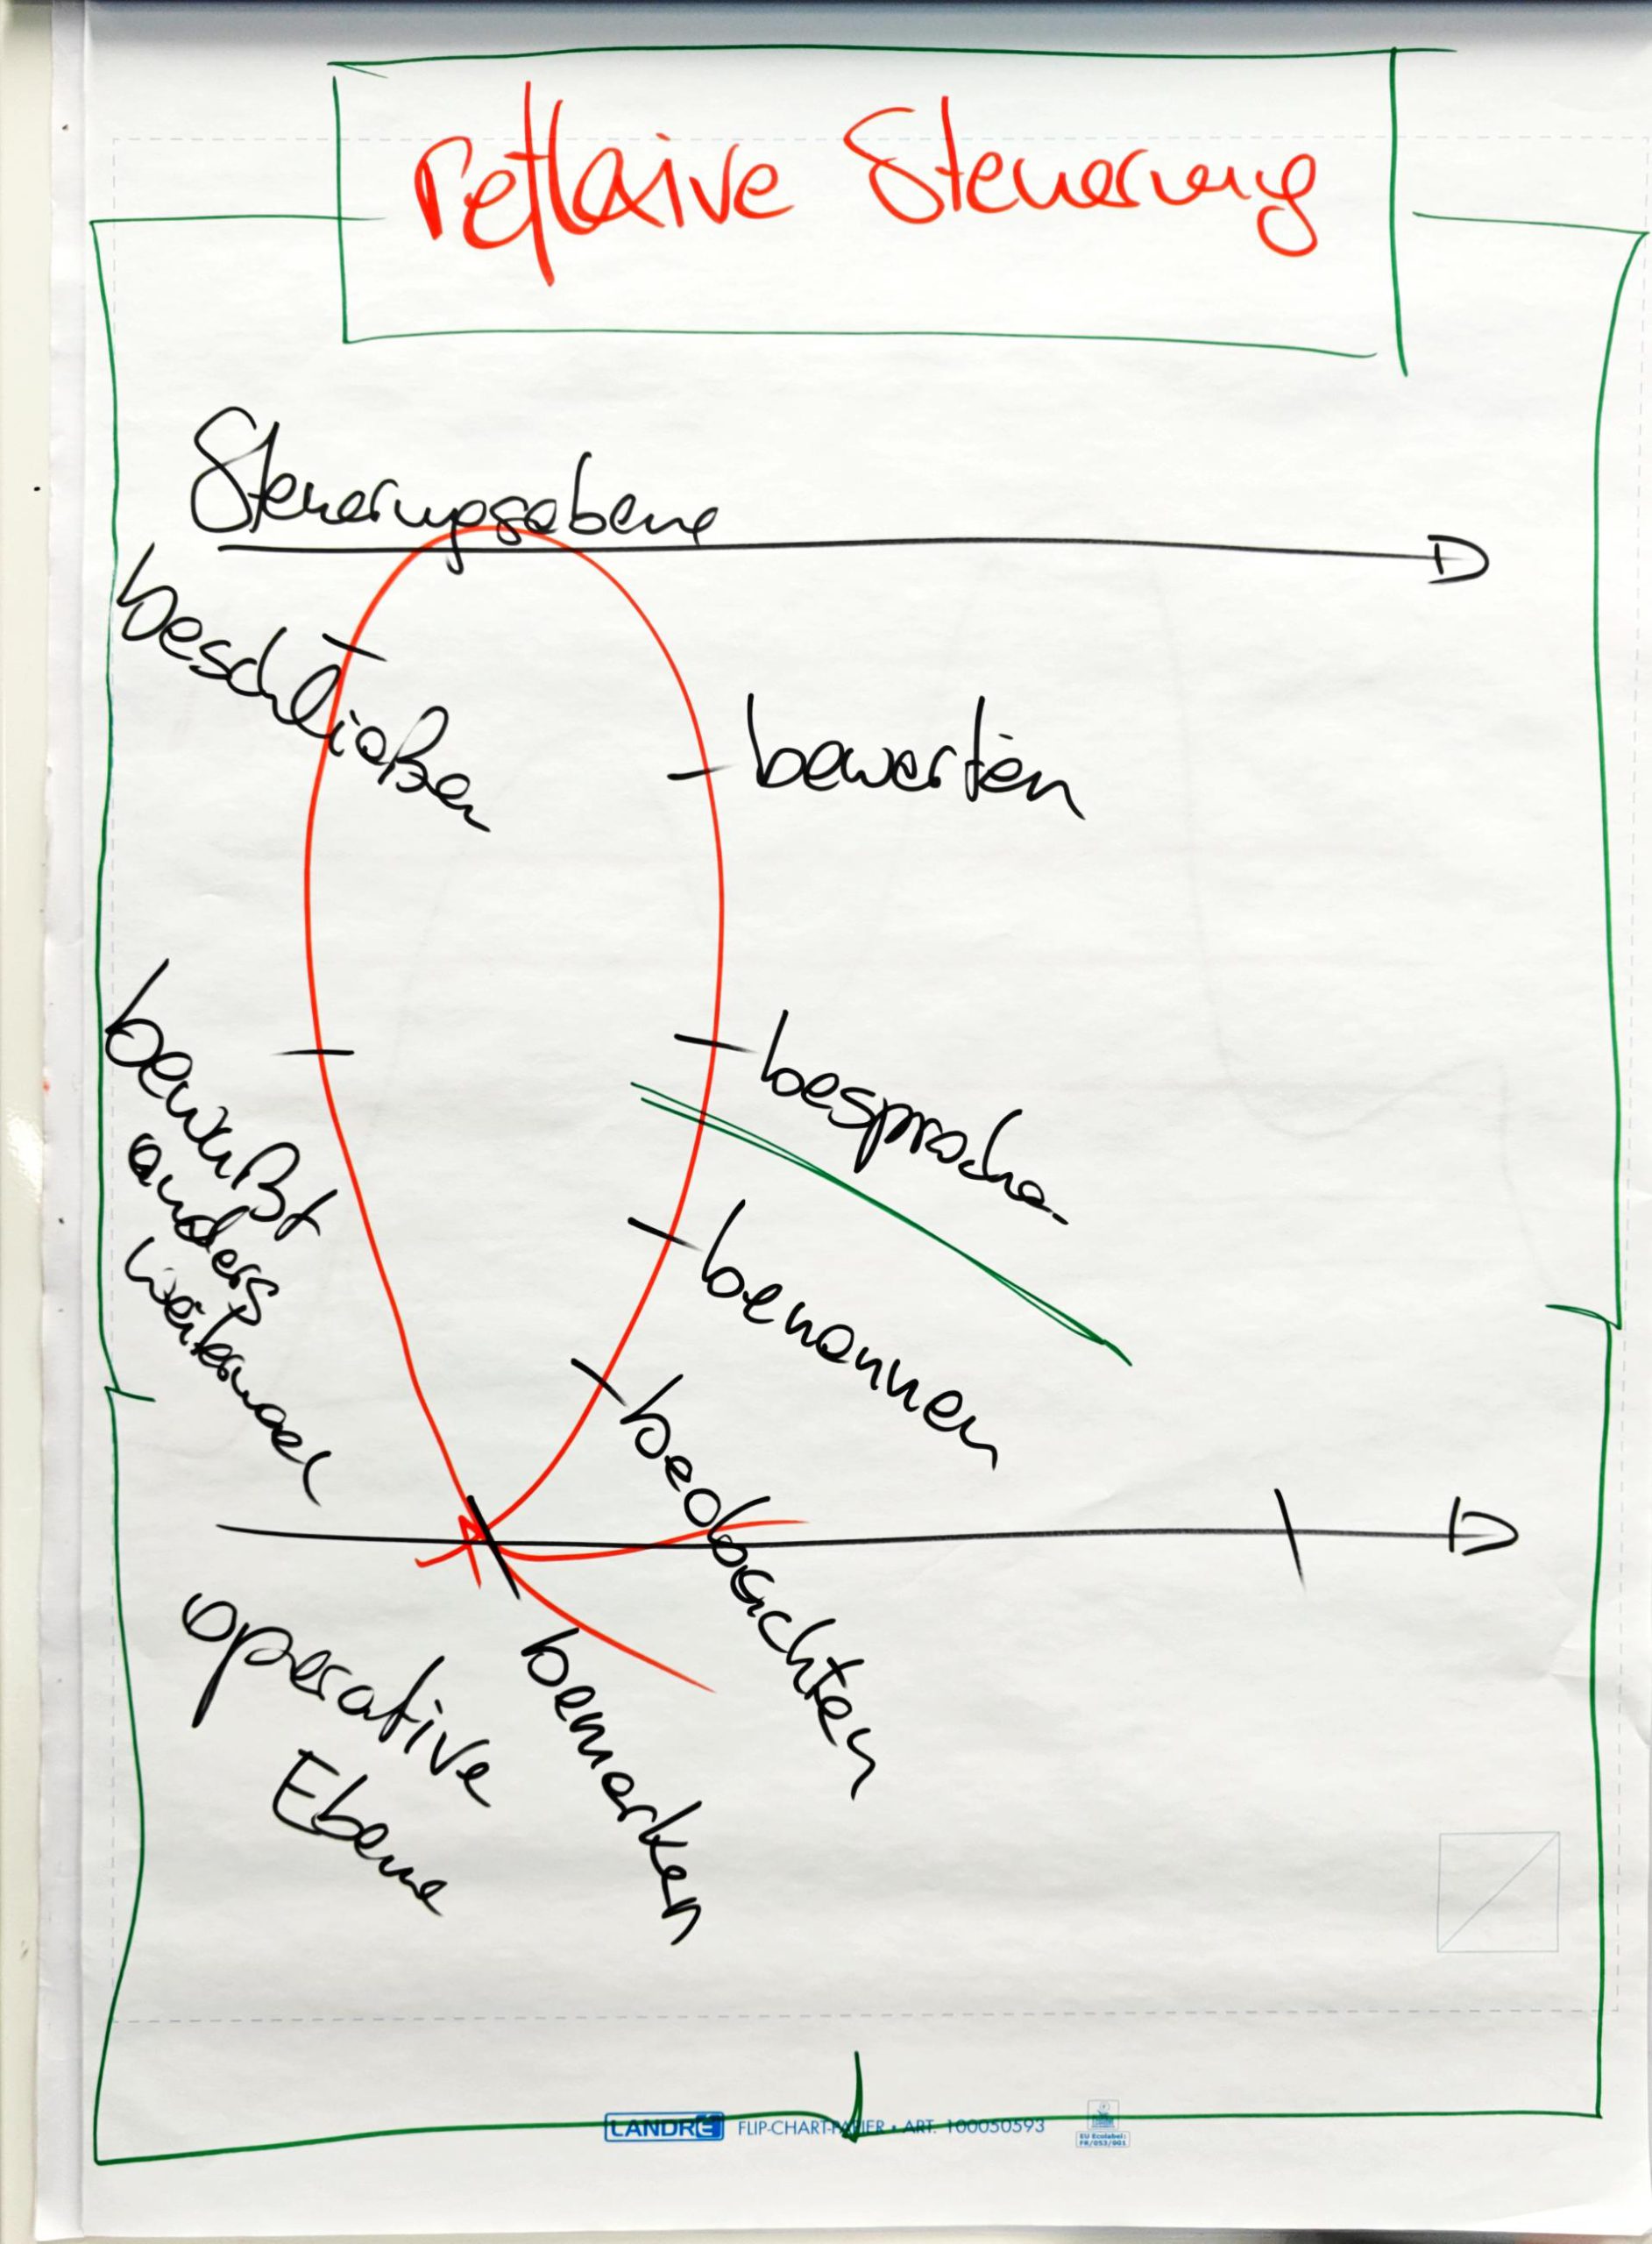 reflexive Steuerung
Steuerungsebene
beschließen
bewerten
besprechen
bewußt
anders
weitermachen
benennen
beobachten
bemerken
operative
Ebene
LANDRÉ FLIP-CHART-PAPIER • ART. 100050593
EU Ecolabel:
FR/053/001